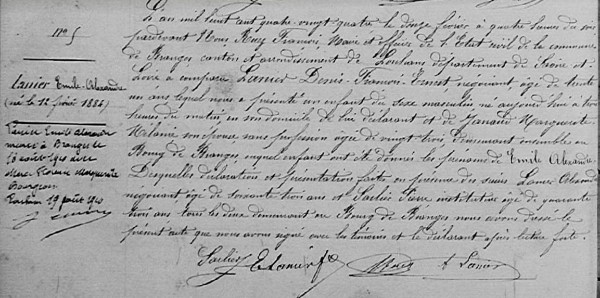 N° 5
Lanier Emile Alexandre
(né le 12 février 1884)
Lanier Emile Alexandre
marié à Branges le
août 1910 avec
Marie Marguerite
Bourgeon
19 août 1910
L'an mil huit cent quatre-vingt quatre le douze février à quatre heures du soir
pardevant Nous Rey François Maire et officier de l'Etat civil de la commune
de Branges canton et arrondissement de Louhans département de Saône et
Loire a comparu Lanier Denis-François-Ernest négociant, âgé de trente
un ans lequel nous a présenté un enfant du sexe masculin né aujourd'hui à trois
heures du matin, en son domicile de lui déclarant et de Janaud Marguerite
Mélanie son épouse, sans profession âgée de vingt trois demeurant ensembles au
Bourg de Branges, auquel enfant ont été donnés les prénoms de Emile Alexandre.
Desquelles déclaration et présentation faites en présence des sieurs Lanier Alexandre
négociant âgé de soixante trois ans et Sarlies instituteur âgé de quarante
trois ans tous les deux demeurant au Bourg de Branges nous avons dressé le
présent acte que nous avons signé avec les témoins et le déclarant après lecture faite.
Sarlies E Lanier fs Rey A Lanier